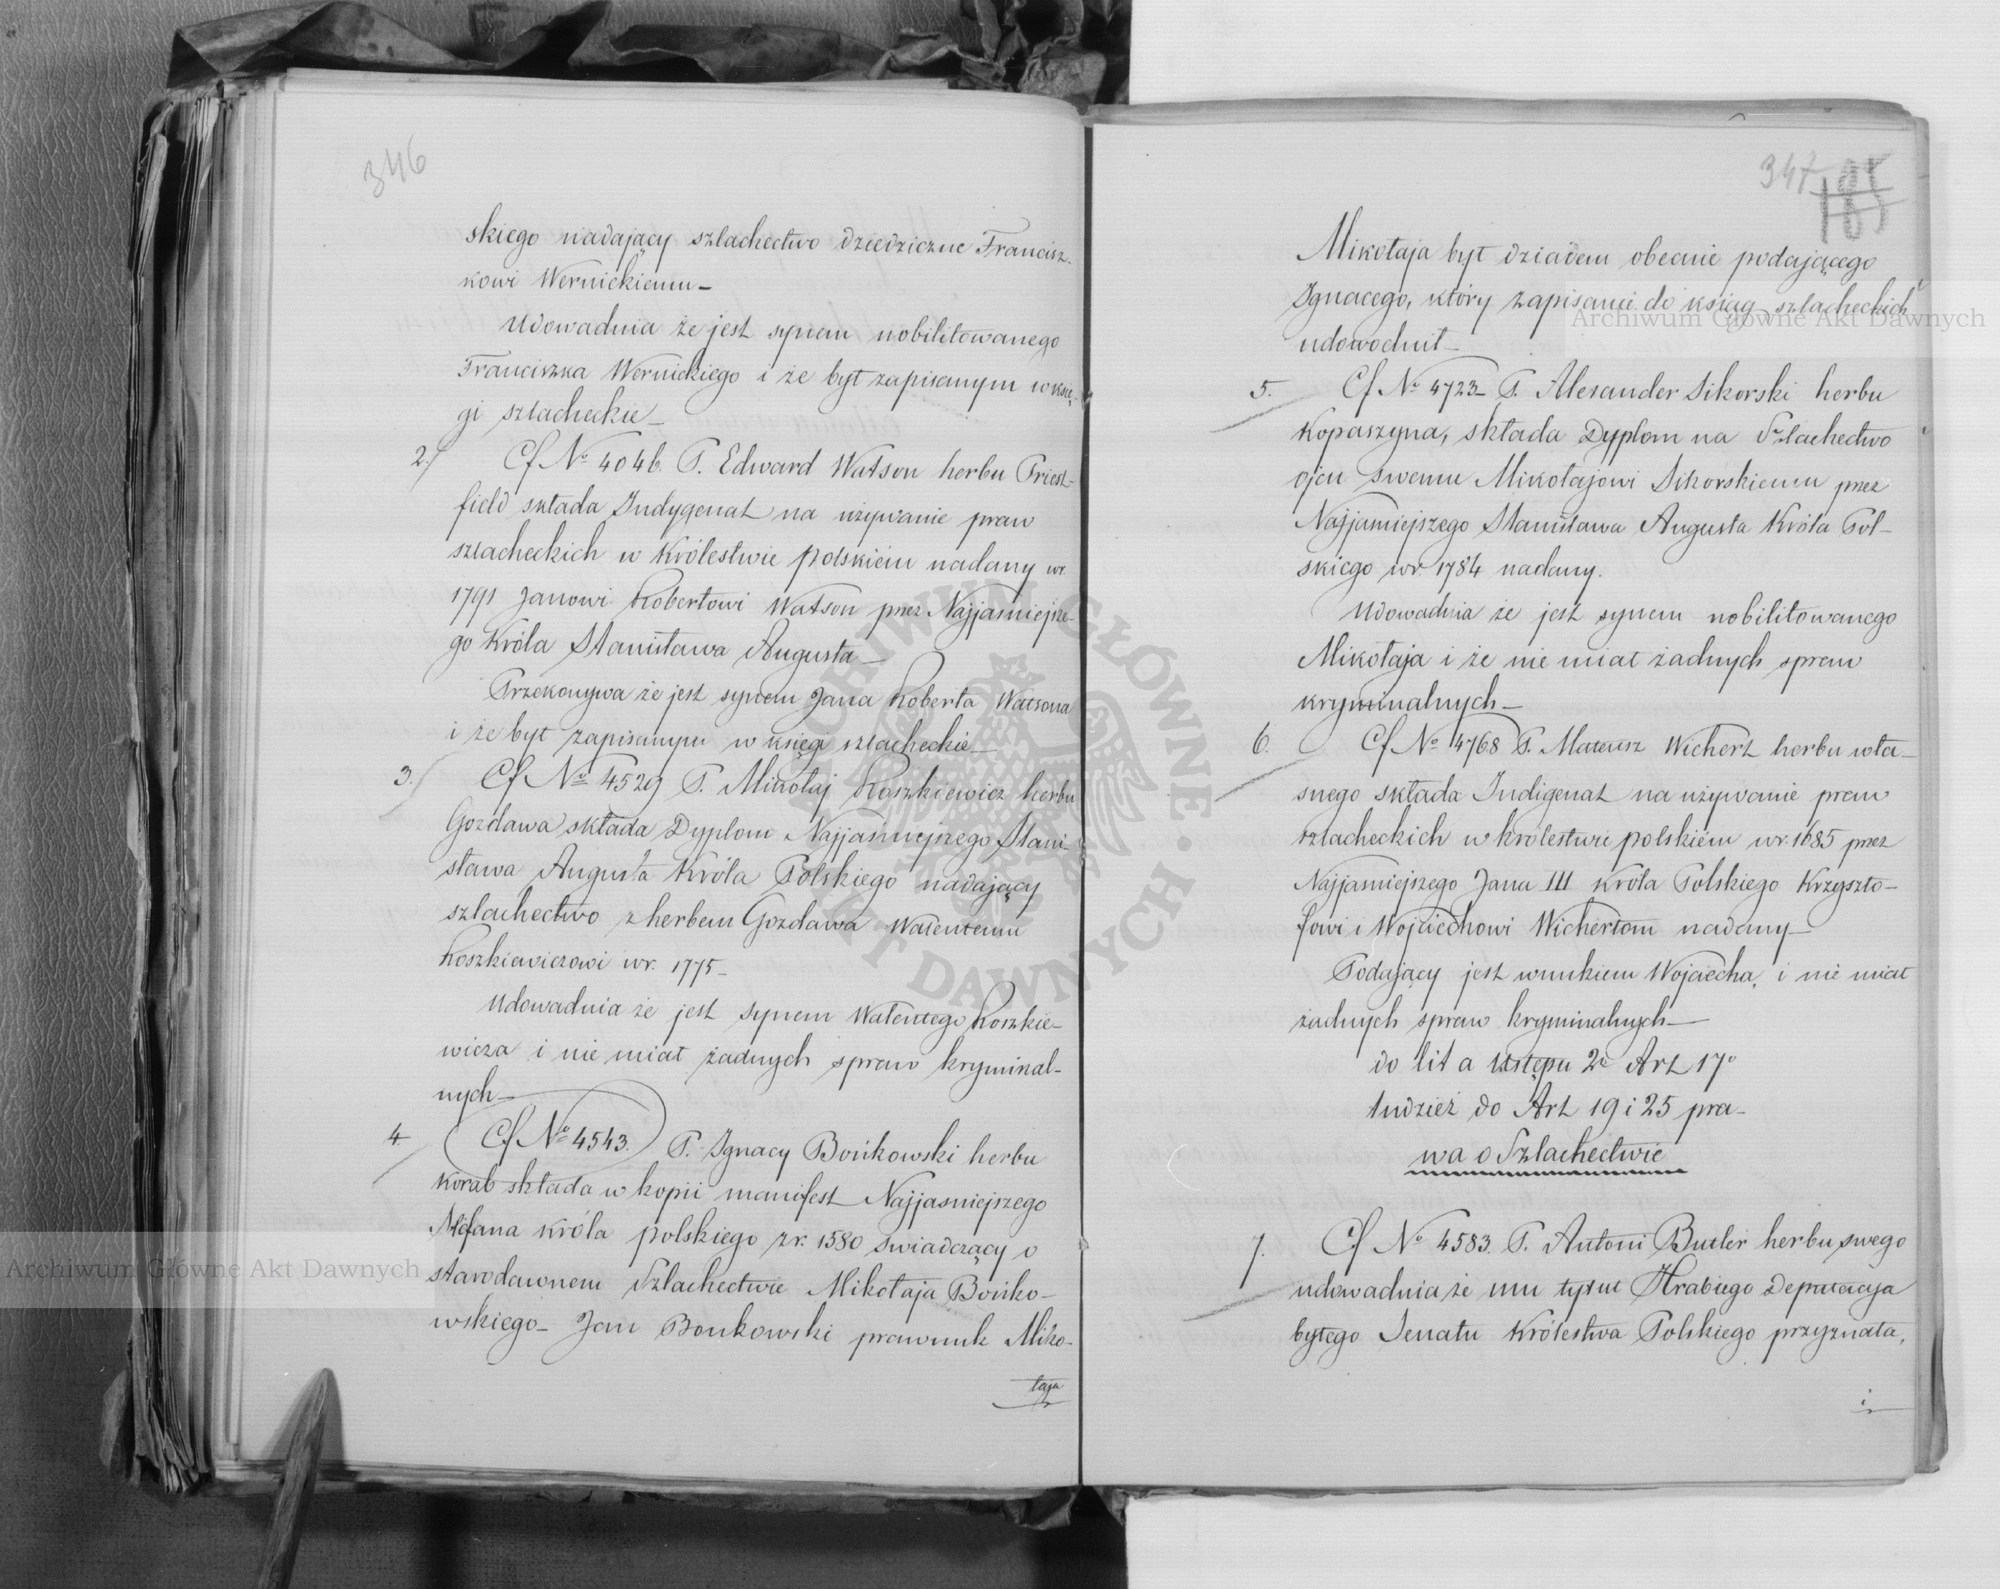 346
skiego nadający szlachectwo dziedziczne Francisz-
kowi Wernickiemu-
Udowadnia że jest synem nobilitowanego
Franciszka Wernickiego i że był zapisanym w księ-
gi szlacheckie-
2. Cf No 4046. P. Edward Watson herbu Priest-
field składa Indygenat na używanie praw
szlacheckich w Królestwie polskiém nadany w r.
1791 Janowi Robertowi Watson przez Najjaśniejsze-
go Króla Stanisława Augusta-
Przekonywa że jest synem Jana Roberta Watsona
i że był zapisanym w księgi szlacheckie-
3. Cf No 4529 P. Mikołaj Roszkiewicz herbu
Gozdawa składa Dyplom Najjaśniejszego Stani-
sława Augusta Króla Polskiego nadający
szlachectwo z herbem Gozdawa Walentemu
Roszkiewiczowi w r. 1775-
Udowadnia że jest synem Walentego Roszkie-
wicza i nie miał żadnych spraw kryminal-
nych-
4. Cf No 4543. P. Ignacy Bońkowski herbu
Korab składa w kopii manifest Najjaśniejszego
króla polskiego z r. 1580 świadczący o
starodawnem Szlachectwie Mikołaja Bońko-
wskiego- Jan Bonkowski prawnuk Miko-
łaja
347 185
Mikołaja był dziadem obecnie podającego
Ignacego, który zapisanie do ksiąg szlacheckich
udowodnił-
5. Cf No 4723- P. Alexander Sikorski herbu
Kopaszyna, składa Dyplom na Szlachectwo
ojcu swemu Mikołajowi Sikorskiemu przez
Najjaśniejszego Stanisława Augusta Króla Pol-
skiego w r. 1784 nadany.
Udowadnia że jest synem nobilitowanego
Mikołaja i że nie miał żadnych spraw
kryminalnych-
6. Cf No 4768 P. Mateusz Wichert herbu wła-
snego składa Indigenat na używanie praw
szlacheckich w królestwie polskiém w r. 1685 przez
Najjaśniejszego Jana III króla Polskiego Krzyszto-
fowi i Wojciechowi Wichertom nadany-
Podający jest wnukiem Wojciecha, i nie miał
żadnych spraw kryminalnych-
do lit a Ustępu 2o Art 17o
tudzież do Art 19 i 25 pra-
wa o Szlachectwie
7. Cf No 4583. P. Antoni Butler herbu swego
udowadnia że mu tytuł Hrabiego Deputacya
byłego Senatu Królestwa Polskiego przyznała,
i
Archiwum Główne Akt Dawnych
Archiwum Główne Akt Dawnych
ARCHIWUM GŁÓWNE · AKT DAWNYCH ·